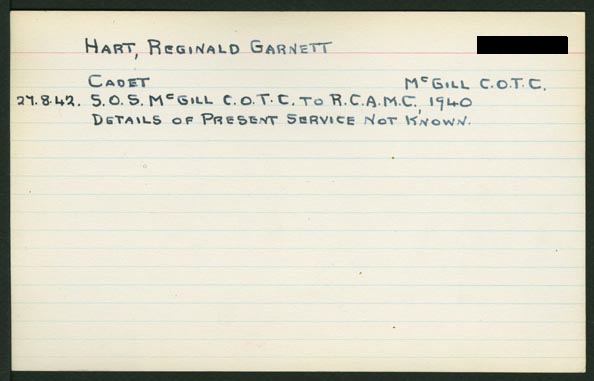 HART, REGINALD GARNETT
CADET McGILL C.O.T.C.
27.8.42. S.O.S. McGILL C.O.T.C. TO R.C.A.M.C., 1940
DETAILS OF PRESENT SERVICE NOT KNOWN.